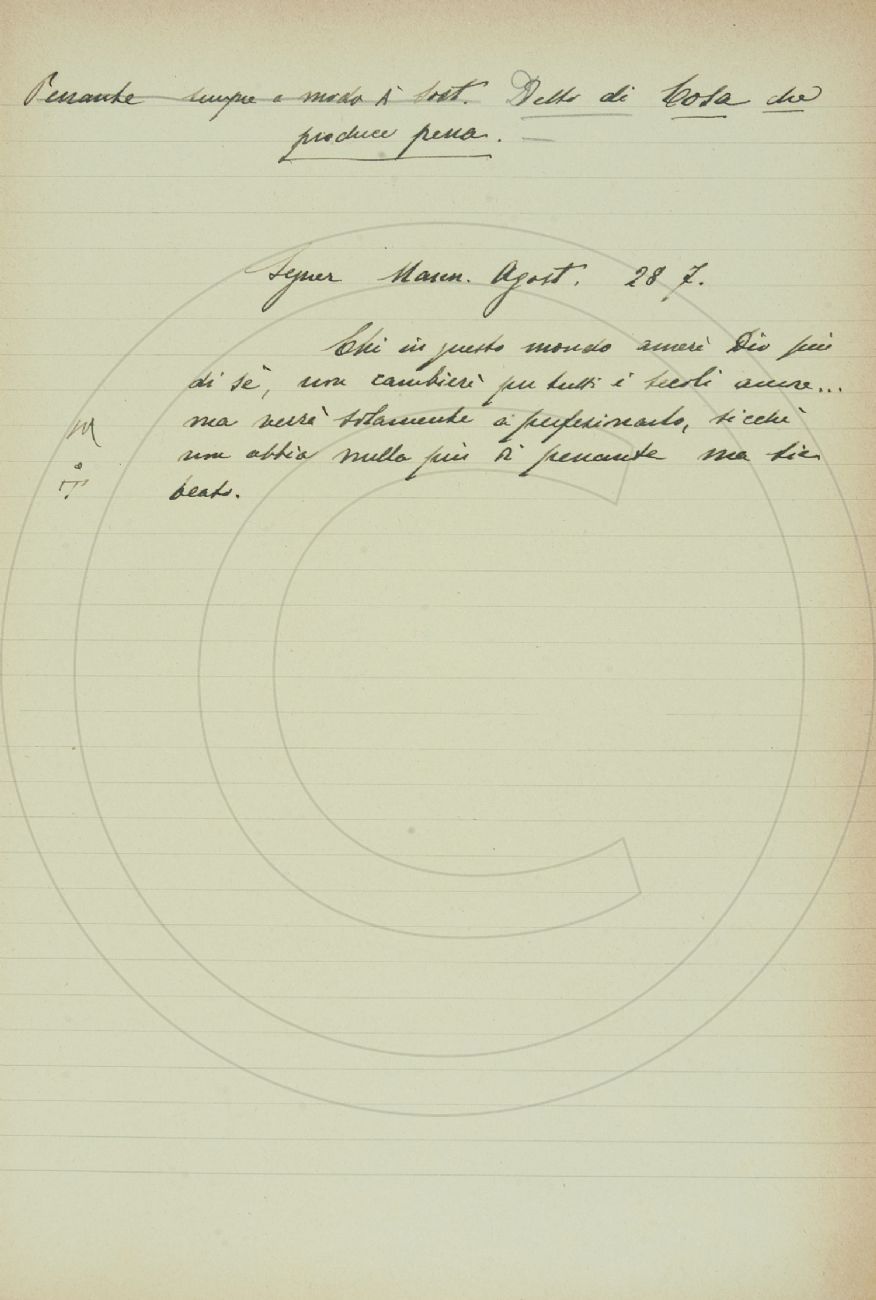 Penante sempre a modo di sost. Detto di Cosa che
produce pena. —
Segner Mann. Agost. 28 7.
Chi in questo mondo amerà Dio più
di sè, non cambierà per tutti i secoli amore...
ma verrà solamente a perfezionarlo, sicchè
non abbia nulla più di penante ma sia
beato.